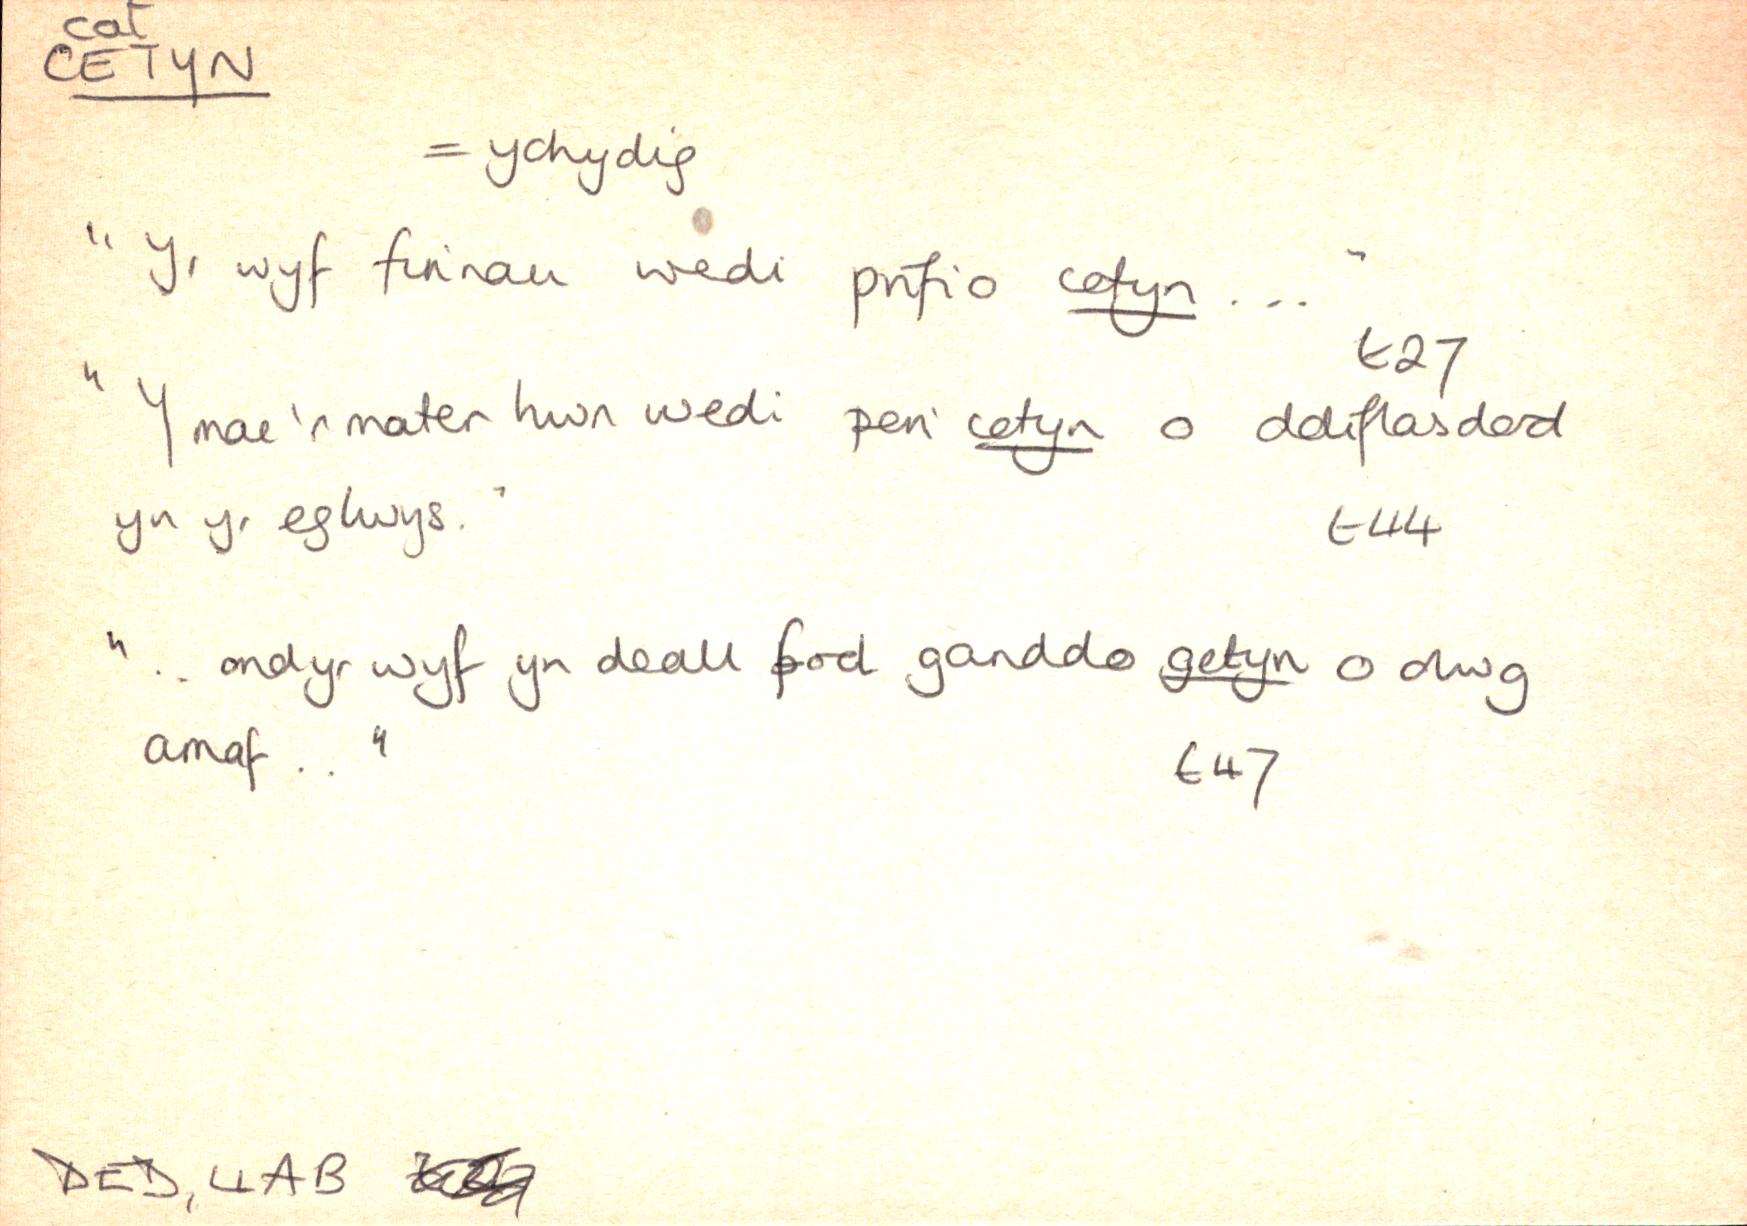 cat
CETYN
= ychydig
"Yr wyf finnau wedi profio cetyn ..."
t27
"Y mae'r mater hwn wedi peri cetyn o ddiflasdod
yn yr eglwys."
t44
".. ond yr wyf yn deall fod ganddo getyn o ddwg
arnaf .."
t47
DED, LLAB